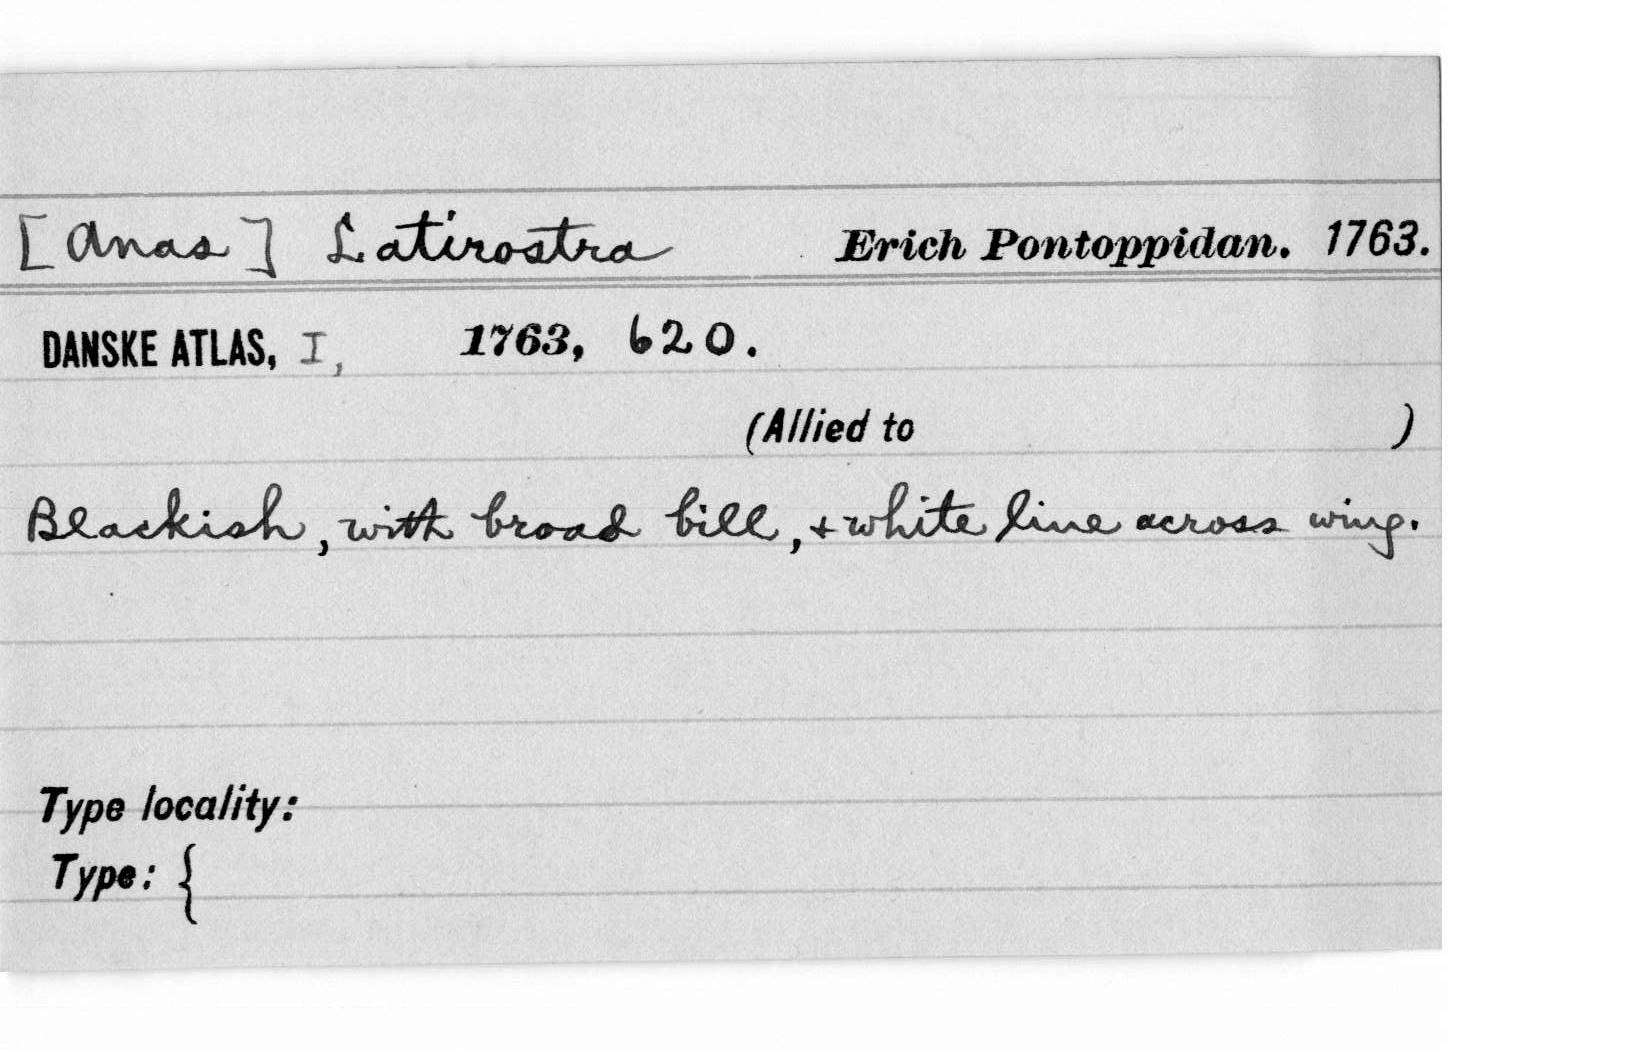 [Anas] Latirostra Erich Pontoppidan. 1763.
DANSKE ATLAS, I, 1763, 620.
(Allied to )
Blackish, with broad bill, + white line across wing.
Type locality:
Type: {